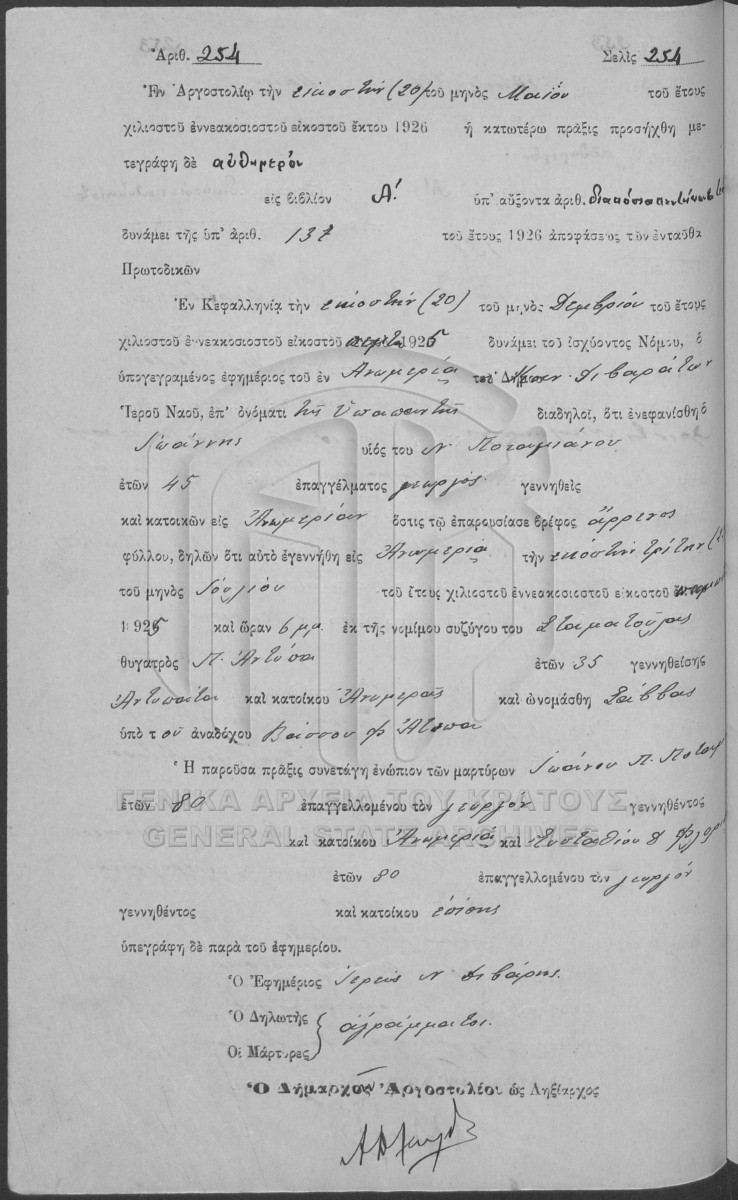 Ἀριθ. 254 Σελὶς 254
Ἐν Ἀργοστολίῳ τὴν εἰκοστὴν (20) τοῦ μηνὸς Μαΐου τοῦ ἔτους
χιλιοστοῦ ἐννεακοσιοστοῦ εἰκοστοῦ ἕκτου 1926 ἡ κατωτέρω πρᾶξις προσήχθη με-
τεγράφη δὲ αὐθημερὸν
εἰς βιβλίον Α! ὑπ' αὔξοντα ἀριθ.
δυνάμει τῆς ὑπ' ἀριθ. 137 τοῦ ἔτους 1926 ἀποφάσεως τῶν ἐνταῦθα
Πρωτοδικῶν
Ἐν Κεφαλληνίᾳ τὴν εἰκοστὴν (20) τοῦ μηνὸς Δεμβρίου τοῦ ἔτους
χιλιοστοῦ ἐννεακοσιοστοῦ εἰκοστοῦ 1925 δυνάμει τοῦ ἰσχύοντος Νόμου, ὁ
ὑπογεγραμένος ἐφημέριος τοῦ ἐν Ἀνωμερίᾳ τοῦ Δήμου Διβαράτων
Ἱεροῦ Ναοῦ, ἐπ' ὀνόματι τῆς Ὑπαπαντῆς διαδηλοῖ, ὅτι ἐνεφανίσθη ὁ
Ἰωάννης υἱός του Ν. Ποταμιάνου
ἐτῶν 45 ἐπαγγέλματος γεωργὸς γεννηθεὶς
καὶ κατοικῶν εἰς Ἀνωμερίαν ὅστις τῷ ἐπαρουσίασε βρέφος ἄρρενος
φύλλου, δηλῶν ὅτι αὐτὸ ἐγεννήθη εἰς Ἀνωμερίᾳ τὴν εἰκοστὴν τρίτην
τοῦ μηνὸς Ἰουλίου τοῦ ἔτους χιλιοστοῦ ἐννεακοσιοστοῦ εἰκοστοῦ
1925 καὶ ὥραν 6 μ.μ. ἐκ τῆς νομίμου συζύγου του Σταματούλας
θυγατρὸς Π. Ἀντύπα ἐτῶν 35 γεννηθείσης
Ἀντυπάτα καὶ κατοίκου Ἀνωμερίας καὶ ὠνομάσθη Σάββας
ὑπὸ τοῦ ἀναδόχου Βάσσου Φ.
Ἡ παροῦσα πρᾶξις συνετάγη ἐνώπιον τῶν μαρτύρων Ἰωάνου Π.
ἐτῶν 80 ἐπαγγελλομένου τὸν γεωργὸν γεννηθέντος
καὶ κατοίκου Ἀνωμερίας καὶ Εὐσταθίου
ἐτῶν 80 ἐπαγγελλομένου τὸν γεωργὸν
γεννηθέντος καὶ κατοίκου ἐπίσης
ὑπεγράφη δὲ παρὰ τοῦ ἐφημερίου.
Ὁ Ἐφημέριος Ἱερεὺς Ν. Διβάρης.
Ὁ Δηλωτὴς
ἀγράμματοι.
Οἱ Μάρτυρες
Ὁ Δήμαρχος Ἀργοστολίου ὡς Ληξίαρχος
ΓΕΝΙΚΑ ΑΡΧΕΙΑ ΤΟΥ ΚΡΑΤΟΥΣ
GENERAL STATE ARCHIVES